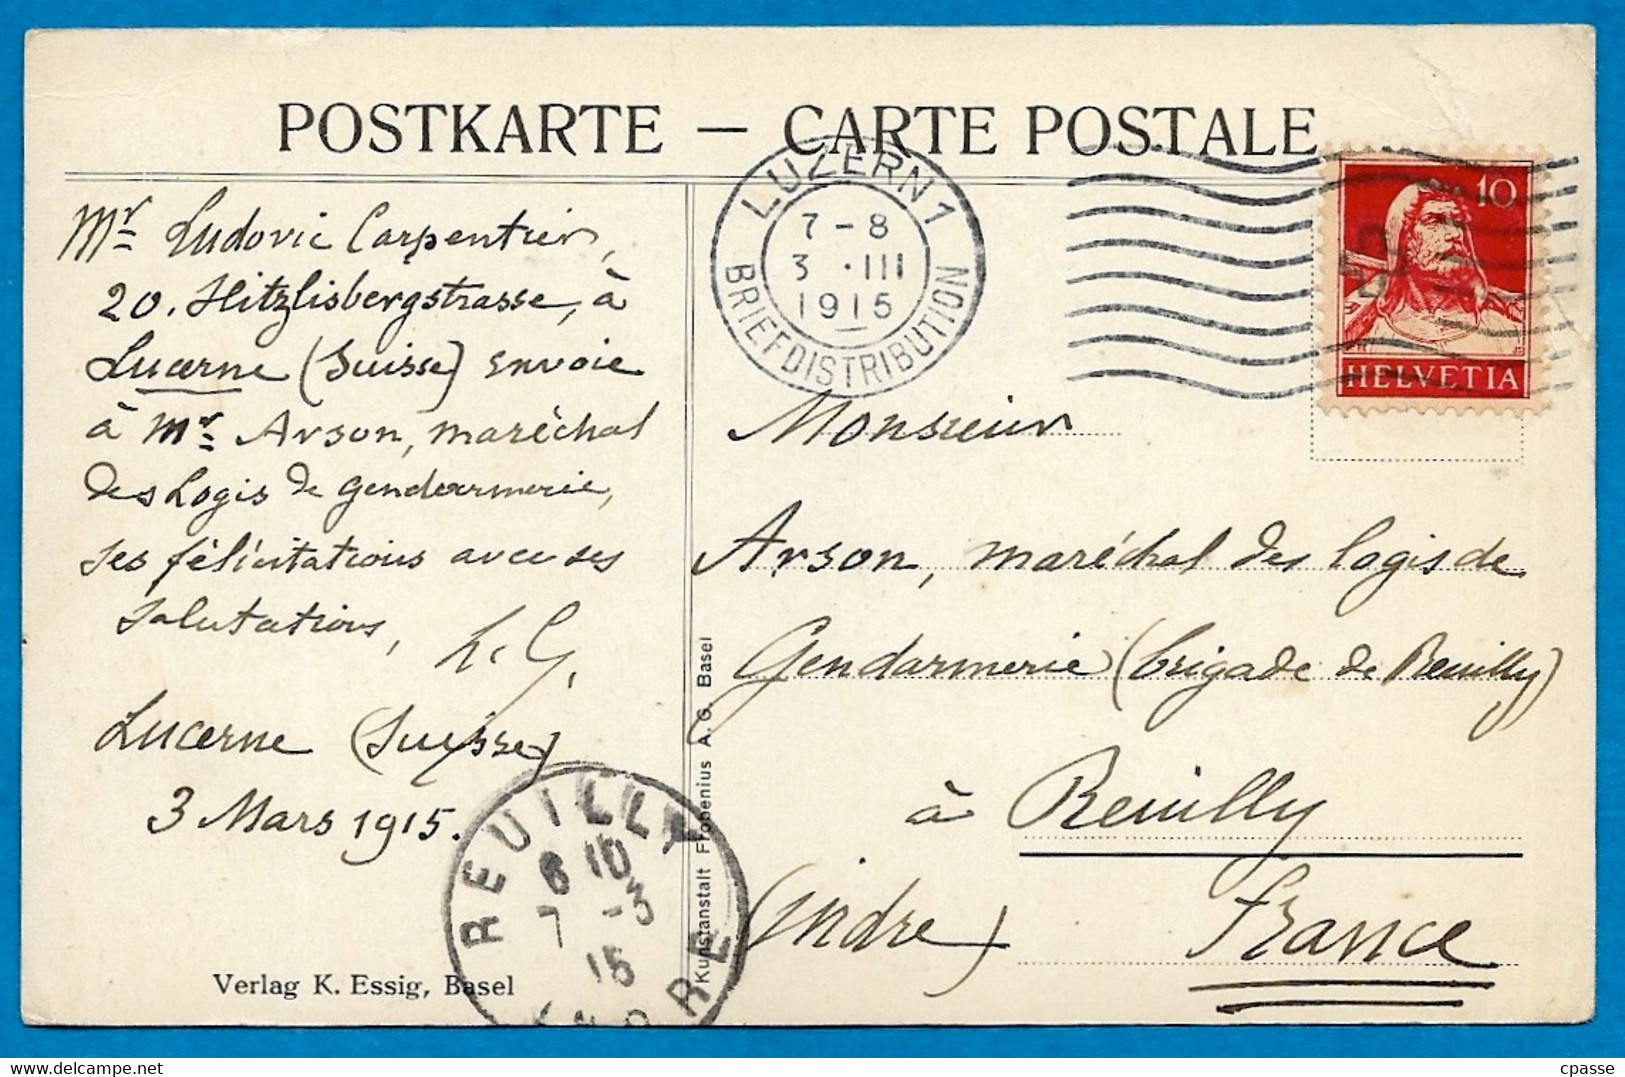 POSTKARTE — CARTE POSTALE
Mr Ludovic Carpentier,
20. Hitzlisbergstrasse, à
Lucerne (Suisse) envoie
à Mr. Arson, maréchal
des Logis de gendarmerie,
ses félicitations avec ses
salutations,
L. G.
Lucerne (Suisse)
3 Mars 1915.
Verlag K. Essig, Basel
REUILLY
6 10
7 -3
15
INDRE
Kunstanstalt Frobenius A. G. Basel
LUZERN 1
7-8
3 .III
1915
BRIEFDISTRIBUTION
10
HELVETIA
Monsieur
Arson, maréchal des logis de
Gendarmerie (brigade de Reuilly)
à Reuilly
(Indre) France
cpasse